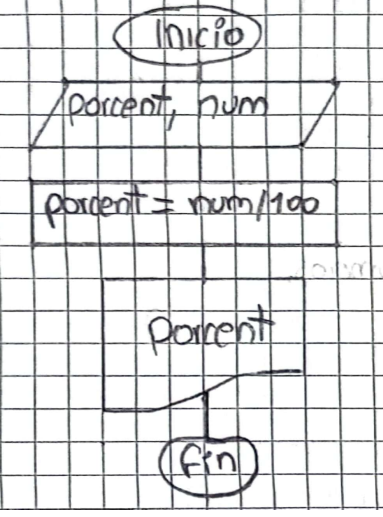 Inicio
porcent, num
porcent = num/100
Porcent
fin